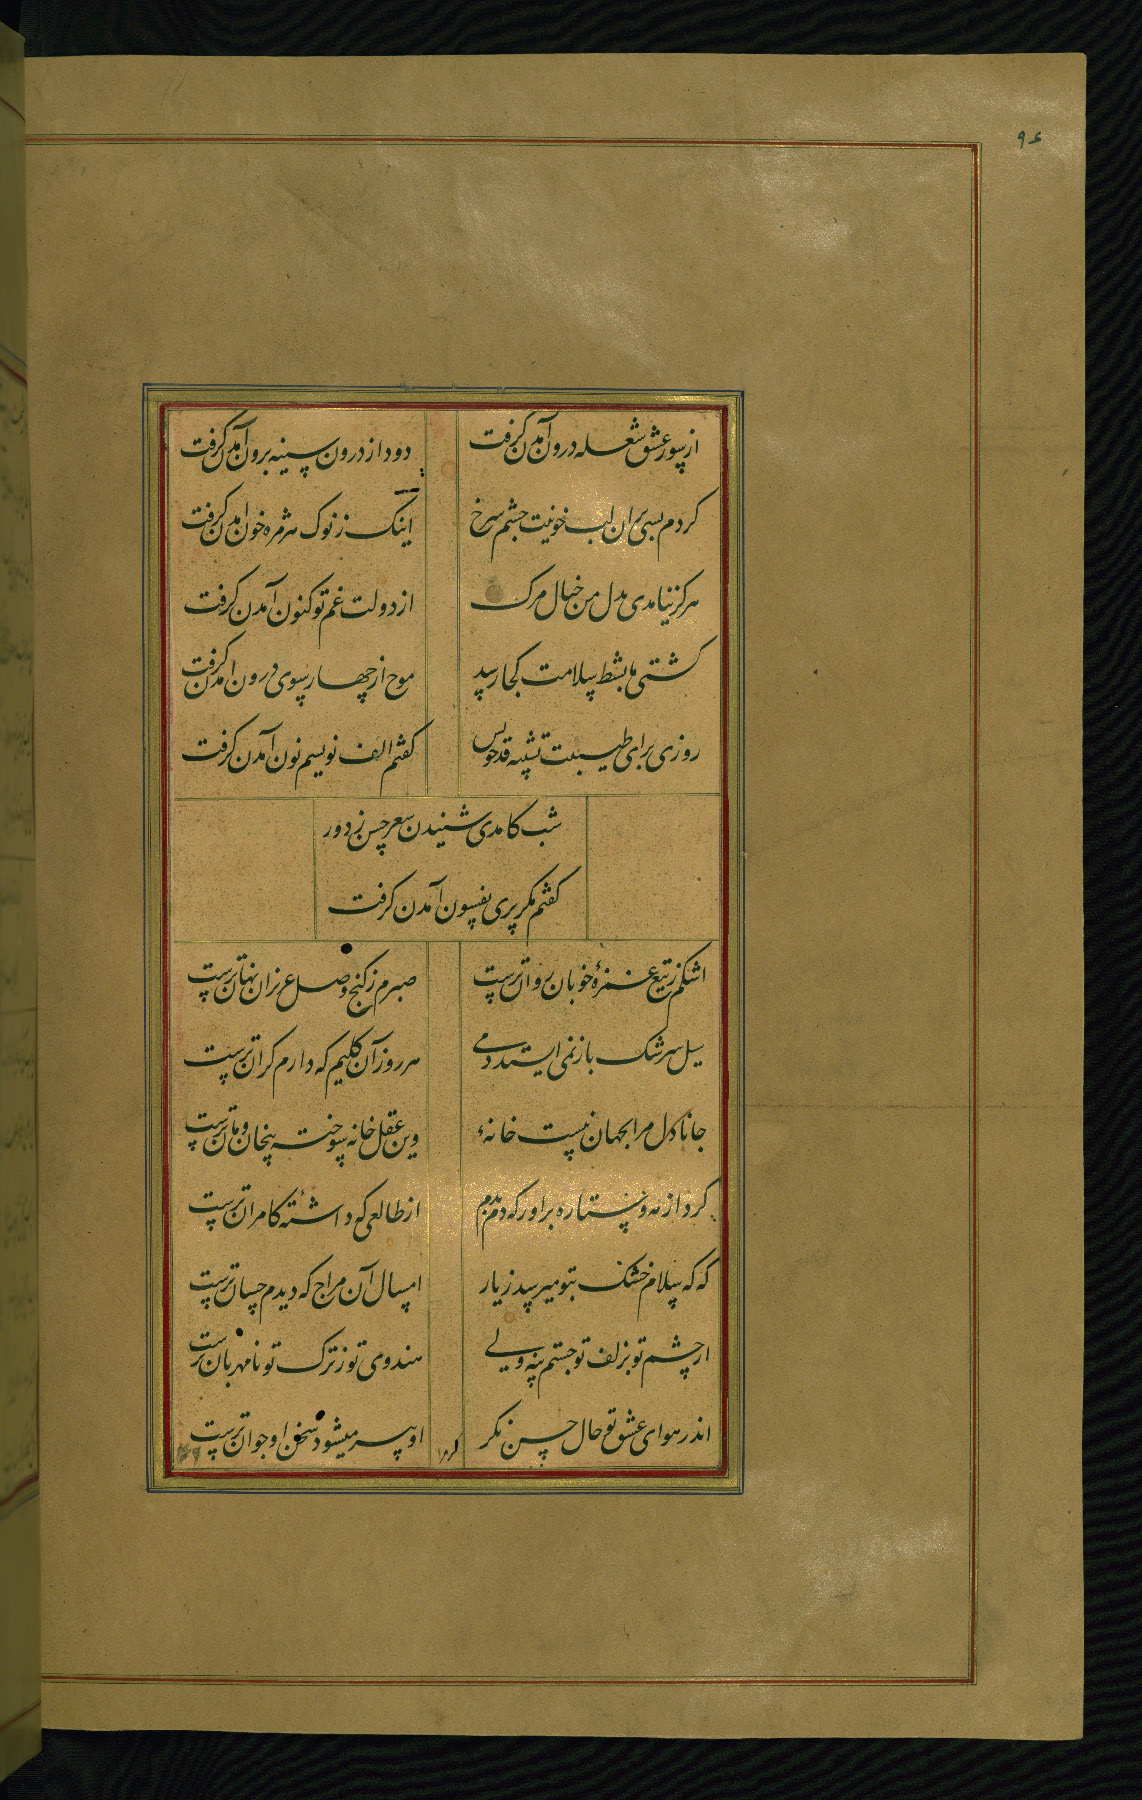 ۹۶
از سوز عشق شعله درون آمدن گرفت
دود از درون سینه برون آمدن گرفت
کردم بسی بران لب خونیت چشم سرخ
اینک ز نوک مژه خون آمدن گرفت
هرگز نیامدی بدل من خیال مرک
از دولت غم تو کنون آمدن گرفت
کشتی ما بشط سلامت کجا رسد
موج از چهار سوی درون آمدن گرفت
روزی برای طیبت تشبیه قد خویش
گفتم الف نویسم نون آمدن گرفت
شب کامدی شنیدن شعر حسن ز دور
گفتم مگر پری بفسون آمدن گرفت
اشکم ز تیغ غمزهٔ خوبان روان ترست
صبرم ز کنج وصل عزیزان نهان ترست
سیل سرشک باز نمی ایستد دمی
هر روز آن کلیم که دارم گران ترست
جانا دل مرا بجهان نیست خانهٔ
وین عقل خانه سوخته بیخان و مان ترست
گرد از مه و ستاره براور که دم بدم
از طالعی که داشتهٔ کامران ترست
که که سلام خشک بتو میرسد ز یار
امسال آن مزاج که دیدم چسان ترست
از چشم تو بزلف تو جستم پنه ولی
هندوی تو ز ترک تو نامهربان ترست
اندر هوای عشق تو حال حسن نگر
او پیر میشود سخن او جوان ترست